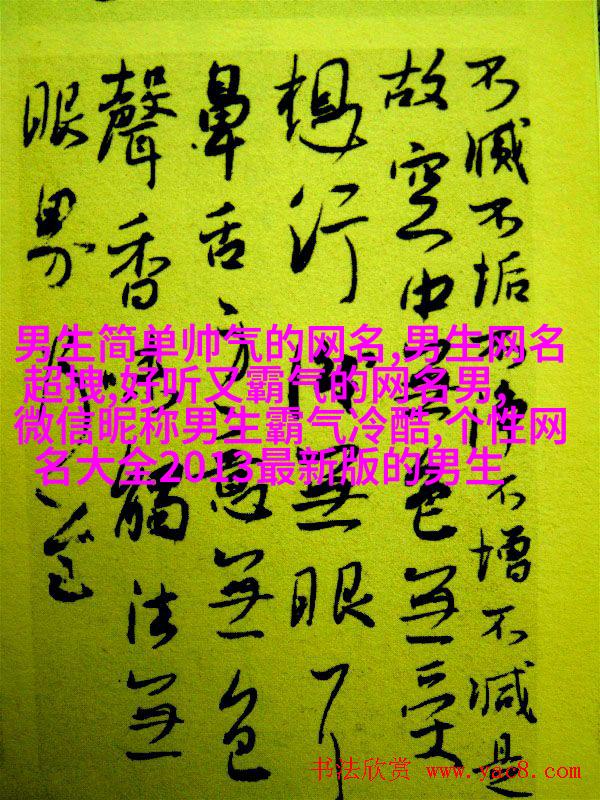 不滅不垢不淨不增不減是
故空中無色無受
想行識無眼耳
鼻舌身意無色
聲香味觸法無
眼界
男生简单帅气的网名,男生网名
超拽,好听又霸气的网名男,
微信昵称男生霸气冷酷,个性网
名大全2013最新版的男生
书法欣赏 www.yac8.com